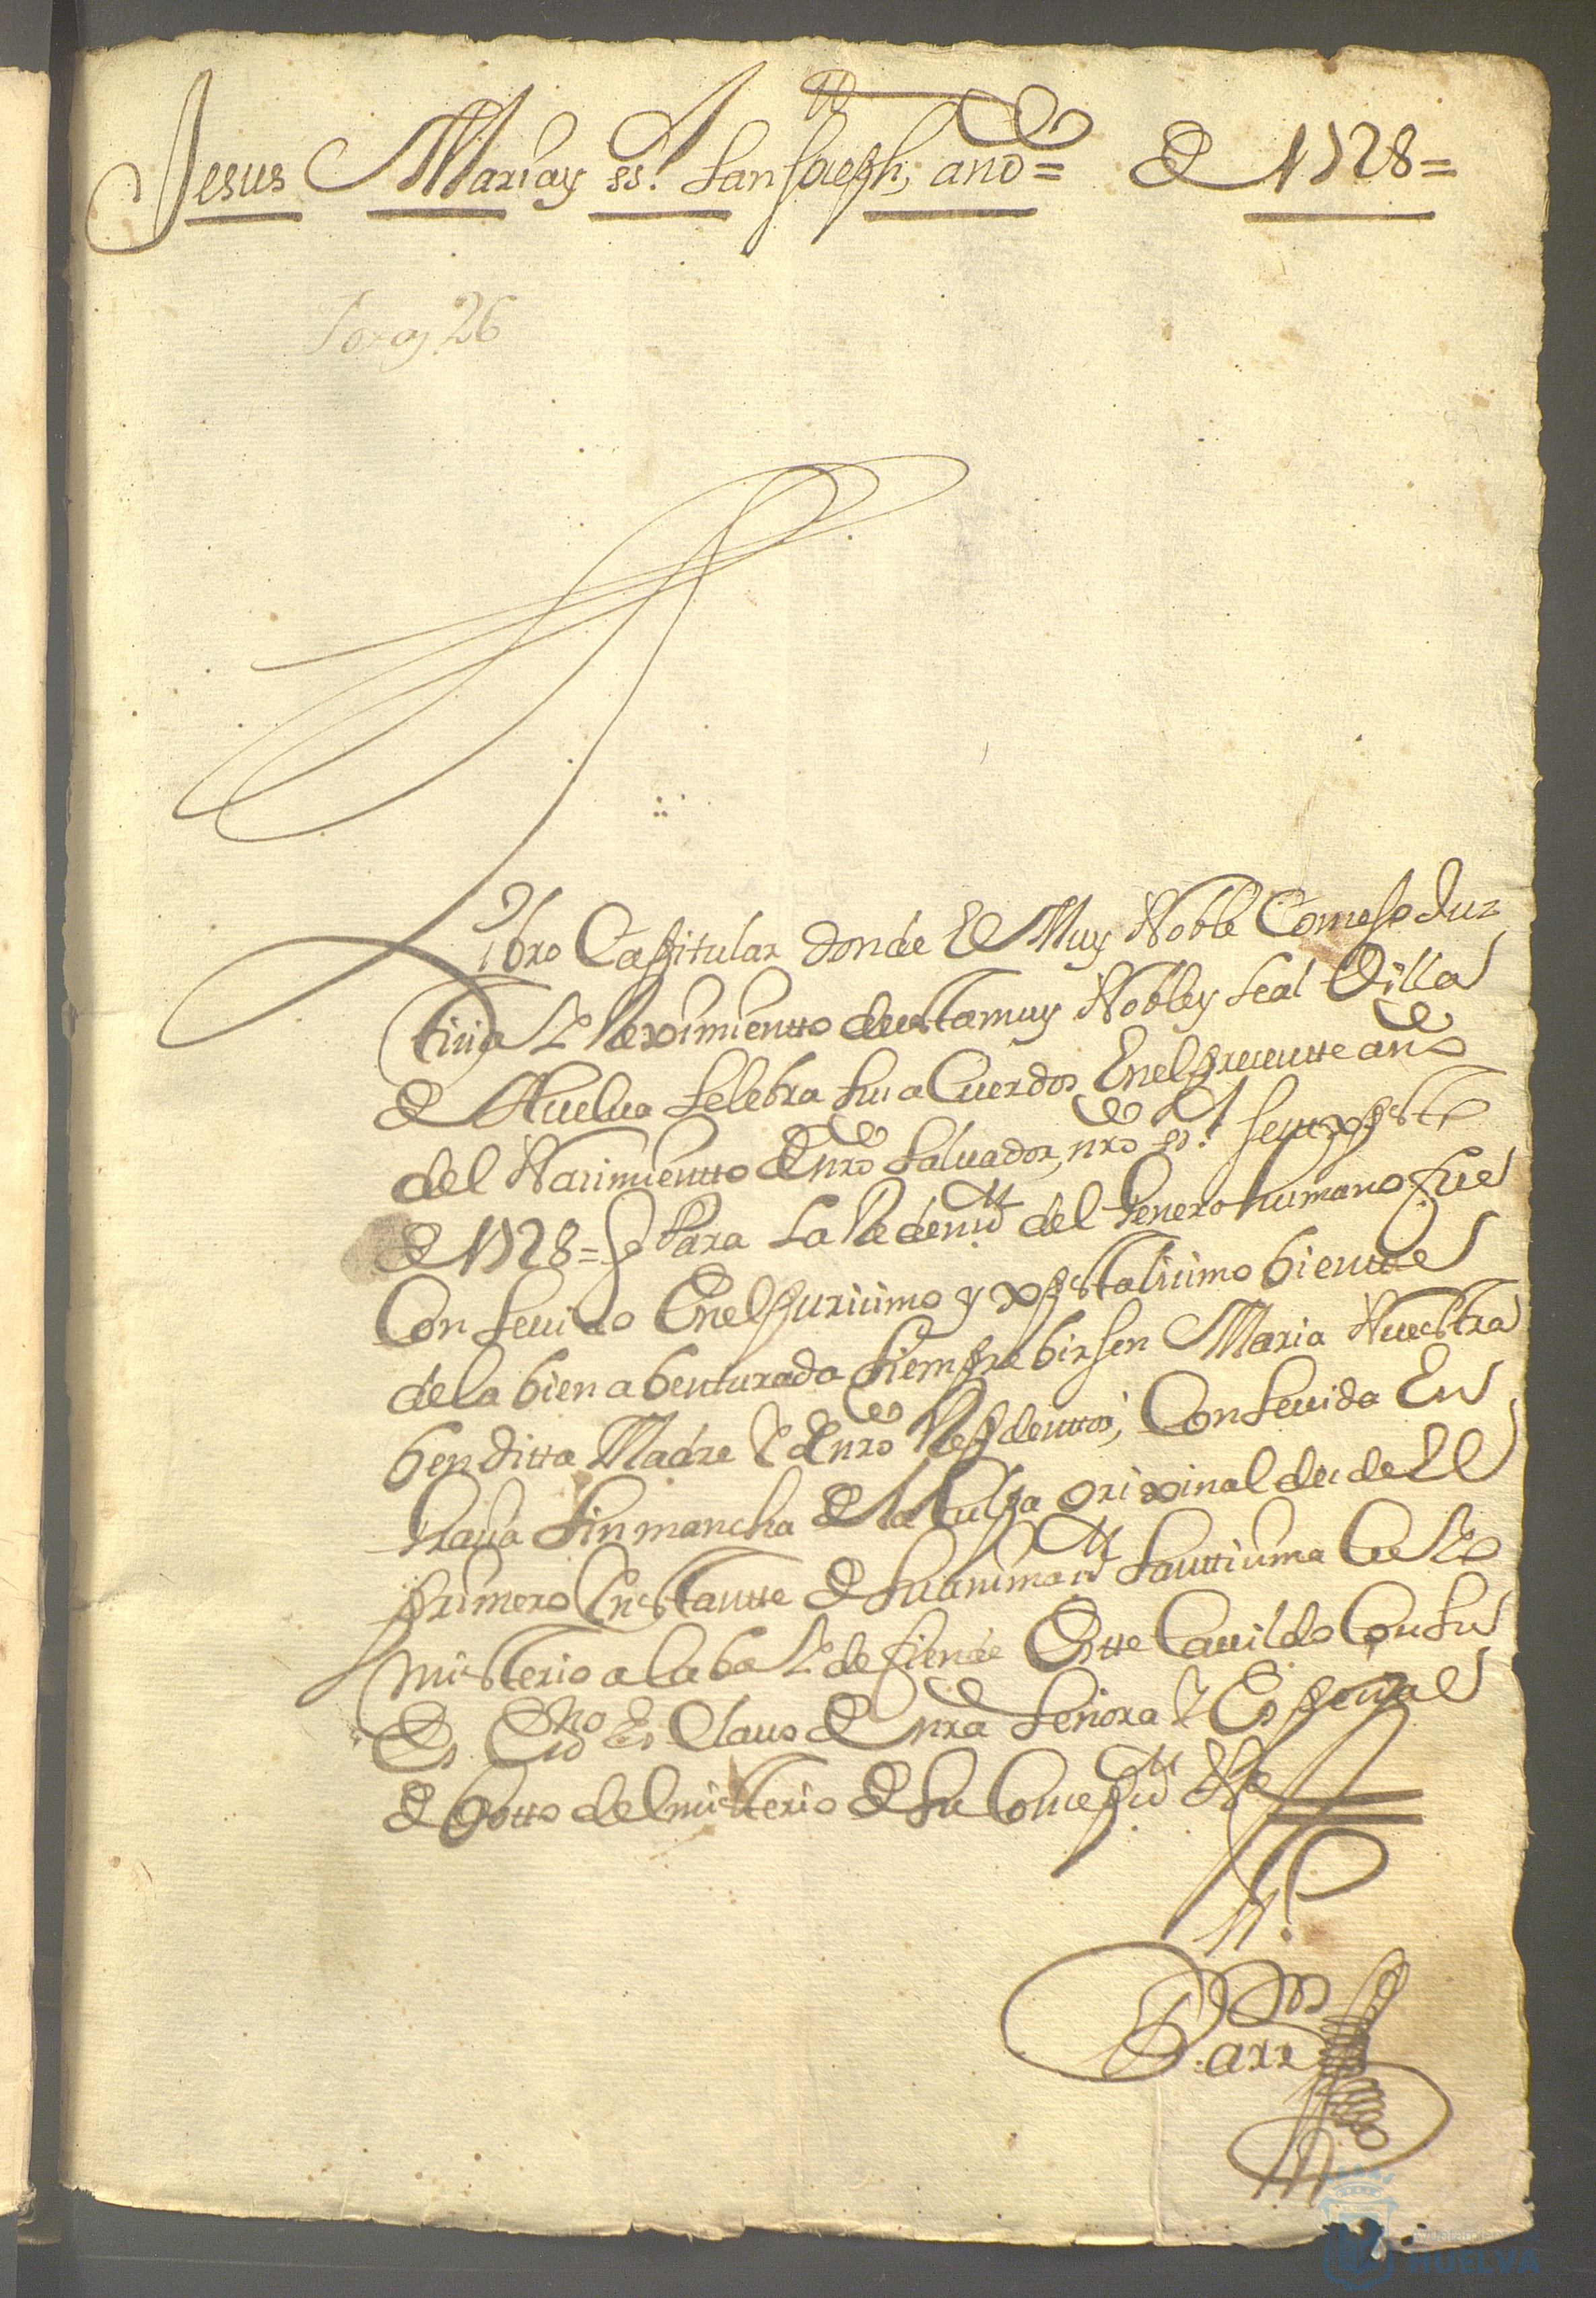 Jesus Maria y ss.r San Joseph; año = de 1728 =
Foxas 26
Libro Capitular donde El Muy Noble Consejo Jus
ticia Y Reximientto de esta muy Noble y Leal Villa
de Huelva Selebra sus aCuerdos En el presentte año
del Nacimientto de nro Salvador, nro ss.r Jesuxpsto
de 1728 = Para La Redenn del Genero humano fue
Consevido En el purissimo y xpstalissimo bientre
de la bien abenturada siempre birjen Maria Nuestra
benditta Madre Y de nro Redentor, Consevida En
Gracia sin mancha de la Culpa orixinal desde El
primero Instantte de su animacn Santtissima Cuio
misterio alaba Y defiende Estte Cavildo Con su
Es.no Es Clavo de nra Señora Y Espesial
de botto del misterio de su Concepcn
Ayuntamiento
HUELVA